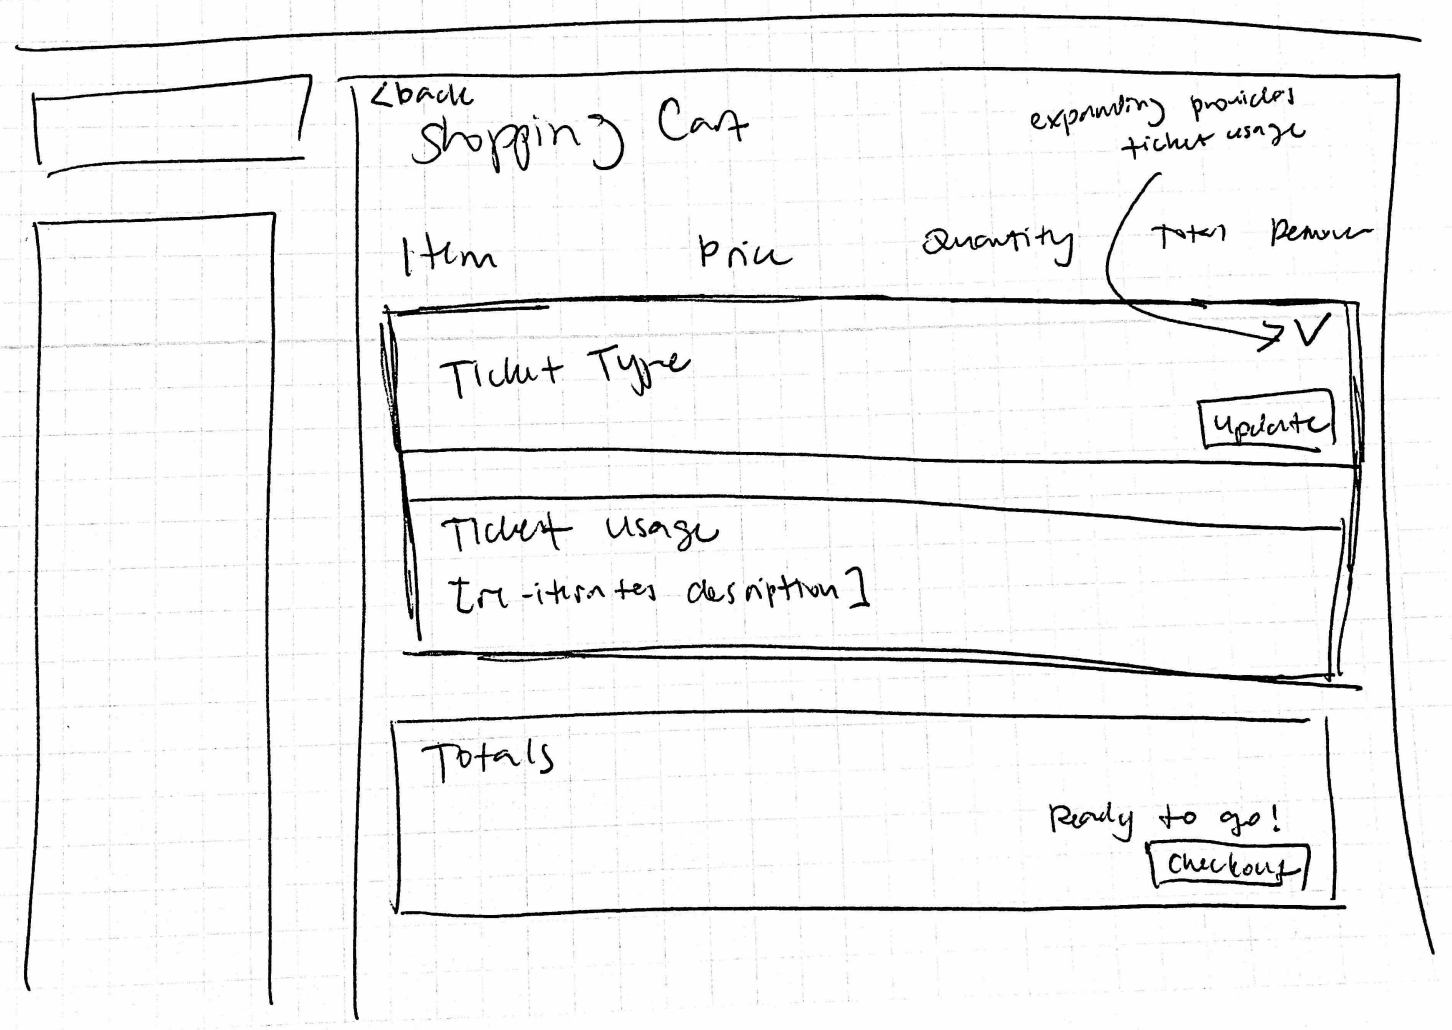 <back
Shopping Cart
expanding provides
ticket usage
Item Price Quantity Total Remove
Ticket Type
Update
Ticket usage
[re-iterates description]
Totals
Ready to go!
Checkout